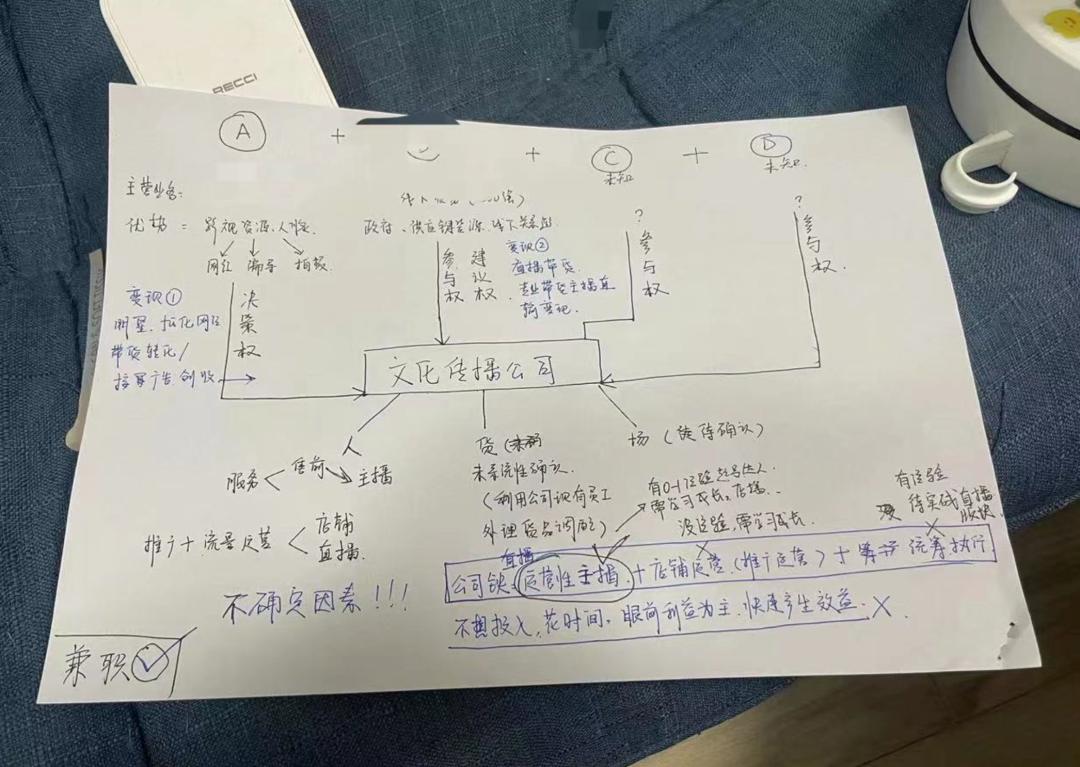 RECCI
A + + C + D
未知 未知
主营业务:
优势 = 影视资源、人脉.
网红 编导 拍摄
政府、供应链资源、线下关系
? ?
决策权
参与权 建议权
参与权
参与权.
变现①
明星、孵化网红
带货转化/
接广告创收
变现②
直播带货
专业带货主播
变现
文化传播公司
人
服务 < 售前 主播
推广+流量运营 < 店铺 直播
货
未系统性确认.
(利用公司现有员工
场(待确认)
有0-1经验起号达人
需学习成长。店播.
没经验,需学习成长.
有经验
待实战直播
直播
公司缺 运营性主播 + 店铺运营.(推广运营) + 统筹执行
不想投入,花时间,眼前利益为主.快速产生效益. X.
不确定因素!!!
兼职